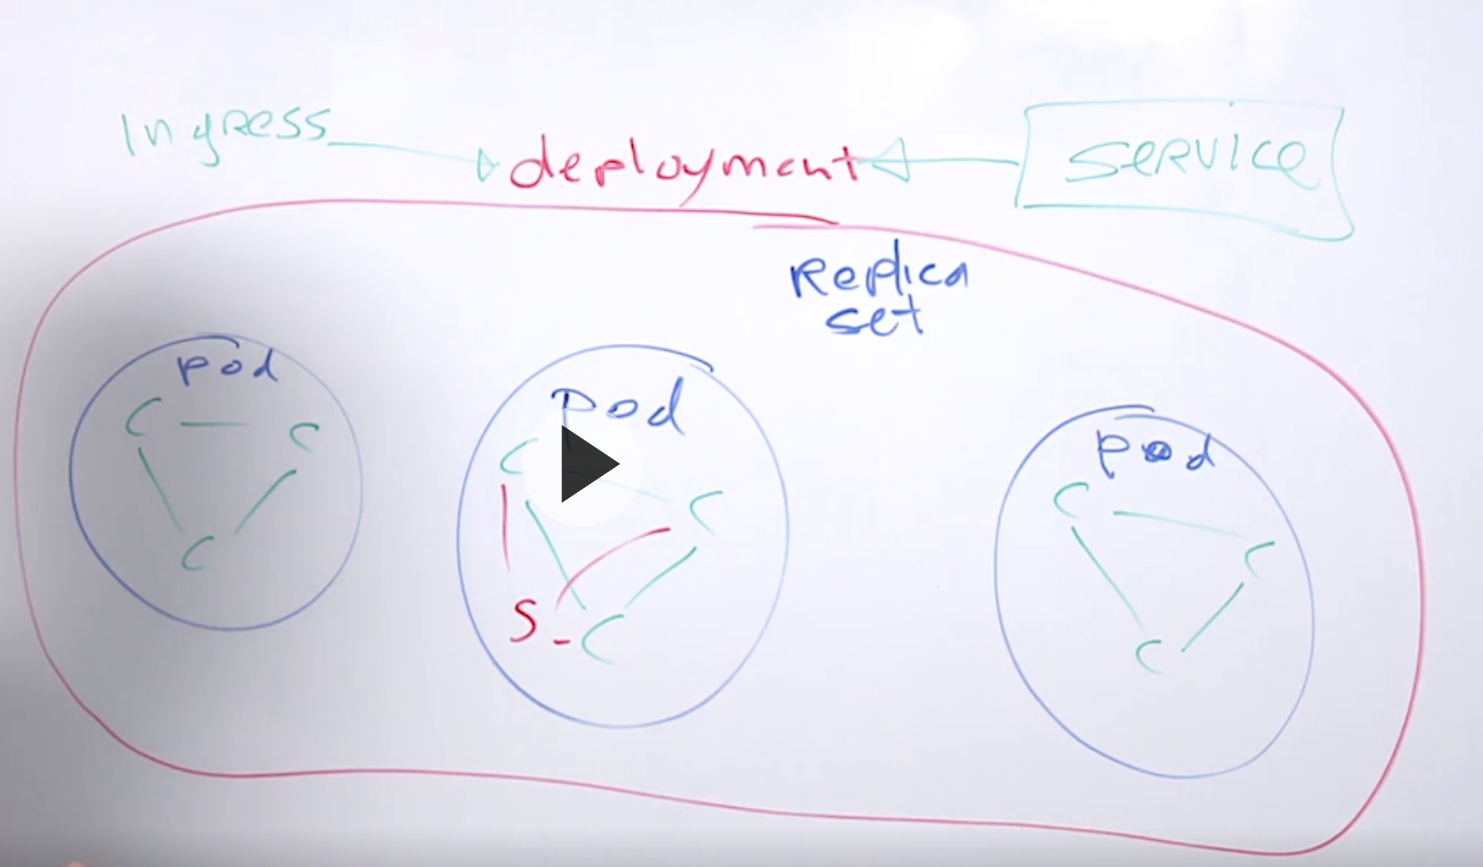 Ingress
deployment
SERVICE
Replica
set
pod
C
C
C
pod
C
C
S
C
pod
C
C
C